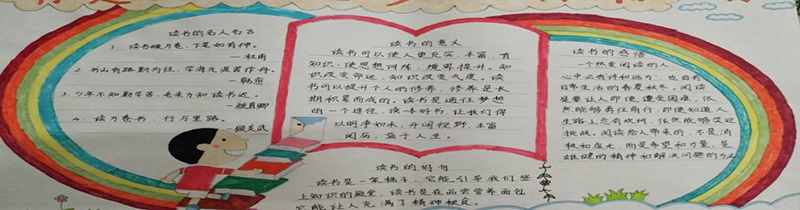 读书的名人名言
1、读书破万卷，下笔如有神。
—杜甫
2、书山有路勤为径，学海无涯苦作舟。
—韩愈
3、少年不知勤学苦，老来方知读书迟。
—颜真卿
4、读万卷书，行万里路。
—顾炎武
读书的意义
读书可以使人更充实，丰富，有
知识，使思想训练，境界提升。知
识改变命运，知识改变气度。读
书可以提升个人的修养，修养是长
期积累而成的。读书是通往梦想
的一个途径，读一本好书，让我们得
以明净如水，开阔视野，丰富
阅历，益于人生。
读书的好句
读书是一架梯子，它能引导我们登
上知识的殿堂，读书是在品尝营养面包，
它能让人充满了精神粮食。
读书的感悟
一个热爱阅读的人，
心中必有诗和远方，也自有
日常生活的春夏秋冬。阅读
是要让人即便遭受困难，依
然能够勇往前行，即使知道人
生路上总有坎坷，依然能够笑迎
挑战。阅读给人带来的，不是消
极和虚无，而是希望和力量，是
雄健的精神和解决问题的方法